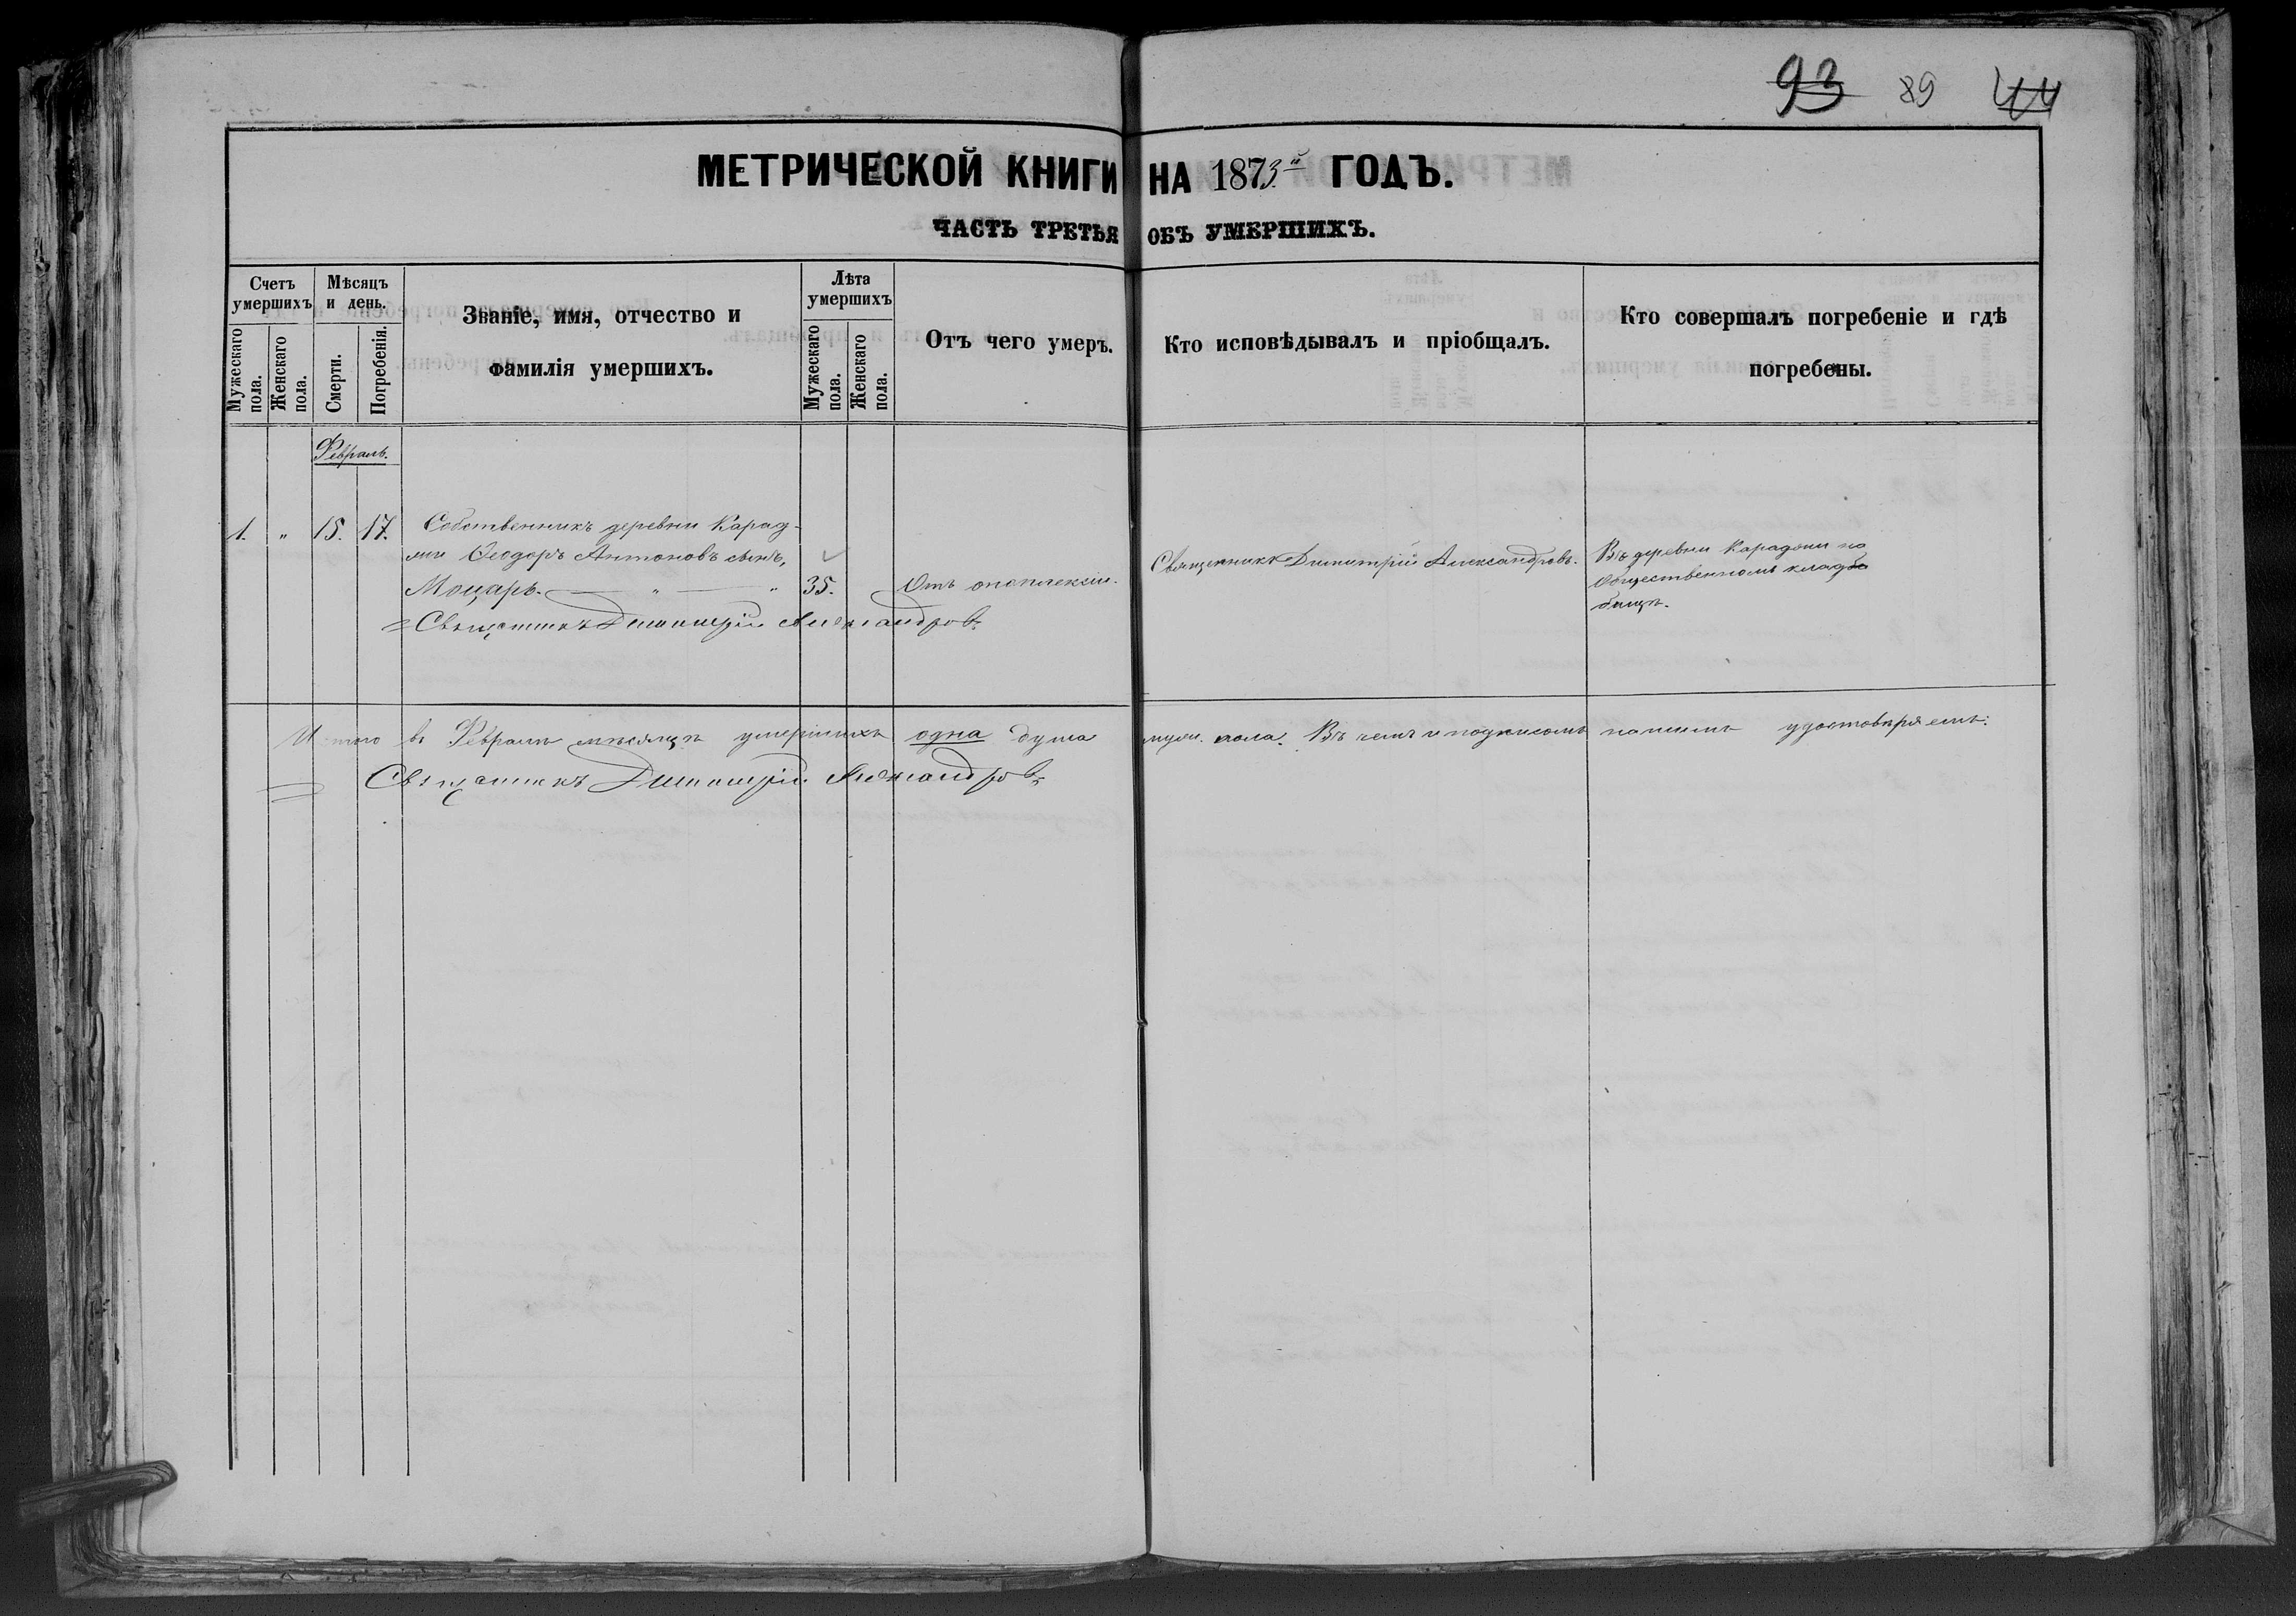 93 89 44
МЕТРИЧЕСКОЙ КНИГИ НА 1873й ГОДЪ.
ЧАСТЬ ТРЕТЬЯ ОБЪ УМЕРШИХЪ.
Счетъ умершихъ
Мужескаго пола.
Женскаго пола.
Мѣсяцъ и день.
Смерти.
Погребенія.
Званіе, имя, отчество и
фамилія умершихъ.
Лѣта умершихъ
Мужескаго пола.
Женскаго пола.
Отъ чего умеръ.
Кто исповѣдывалъ и пріобщалъ.
Кто совершалъ погребеніе и гдѣ
погребены.
Февраль.
1. " 15. 17. Собственникъ деревни Карад-
Ѳеодоръ Антоновъ сынъ,
Моцарь. " " 35. Отъ апоплексіи.
Священникъ Димитрій Александровъ.
Въ деревни на
Общественномъ клад
бищѣ.
Священникъ Димитрій Александровъ
Итого въ Февралѣ мѣсяцѣ умершихъ одна душа муж. пола. Въ чемъ и подписомъ нашимъ удостовѣряемъ:
Священникъ Димитрій Александровъ